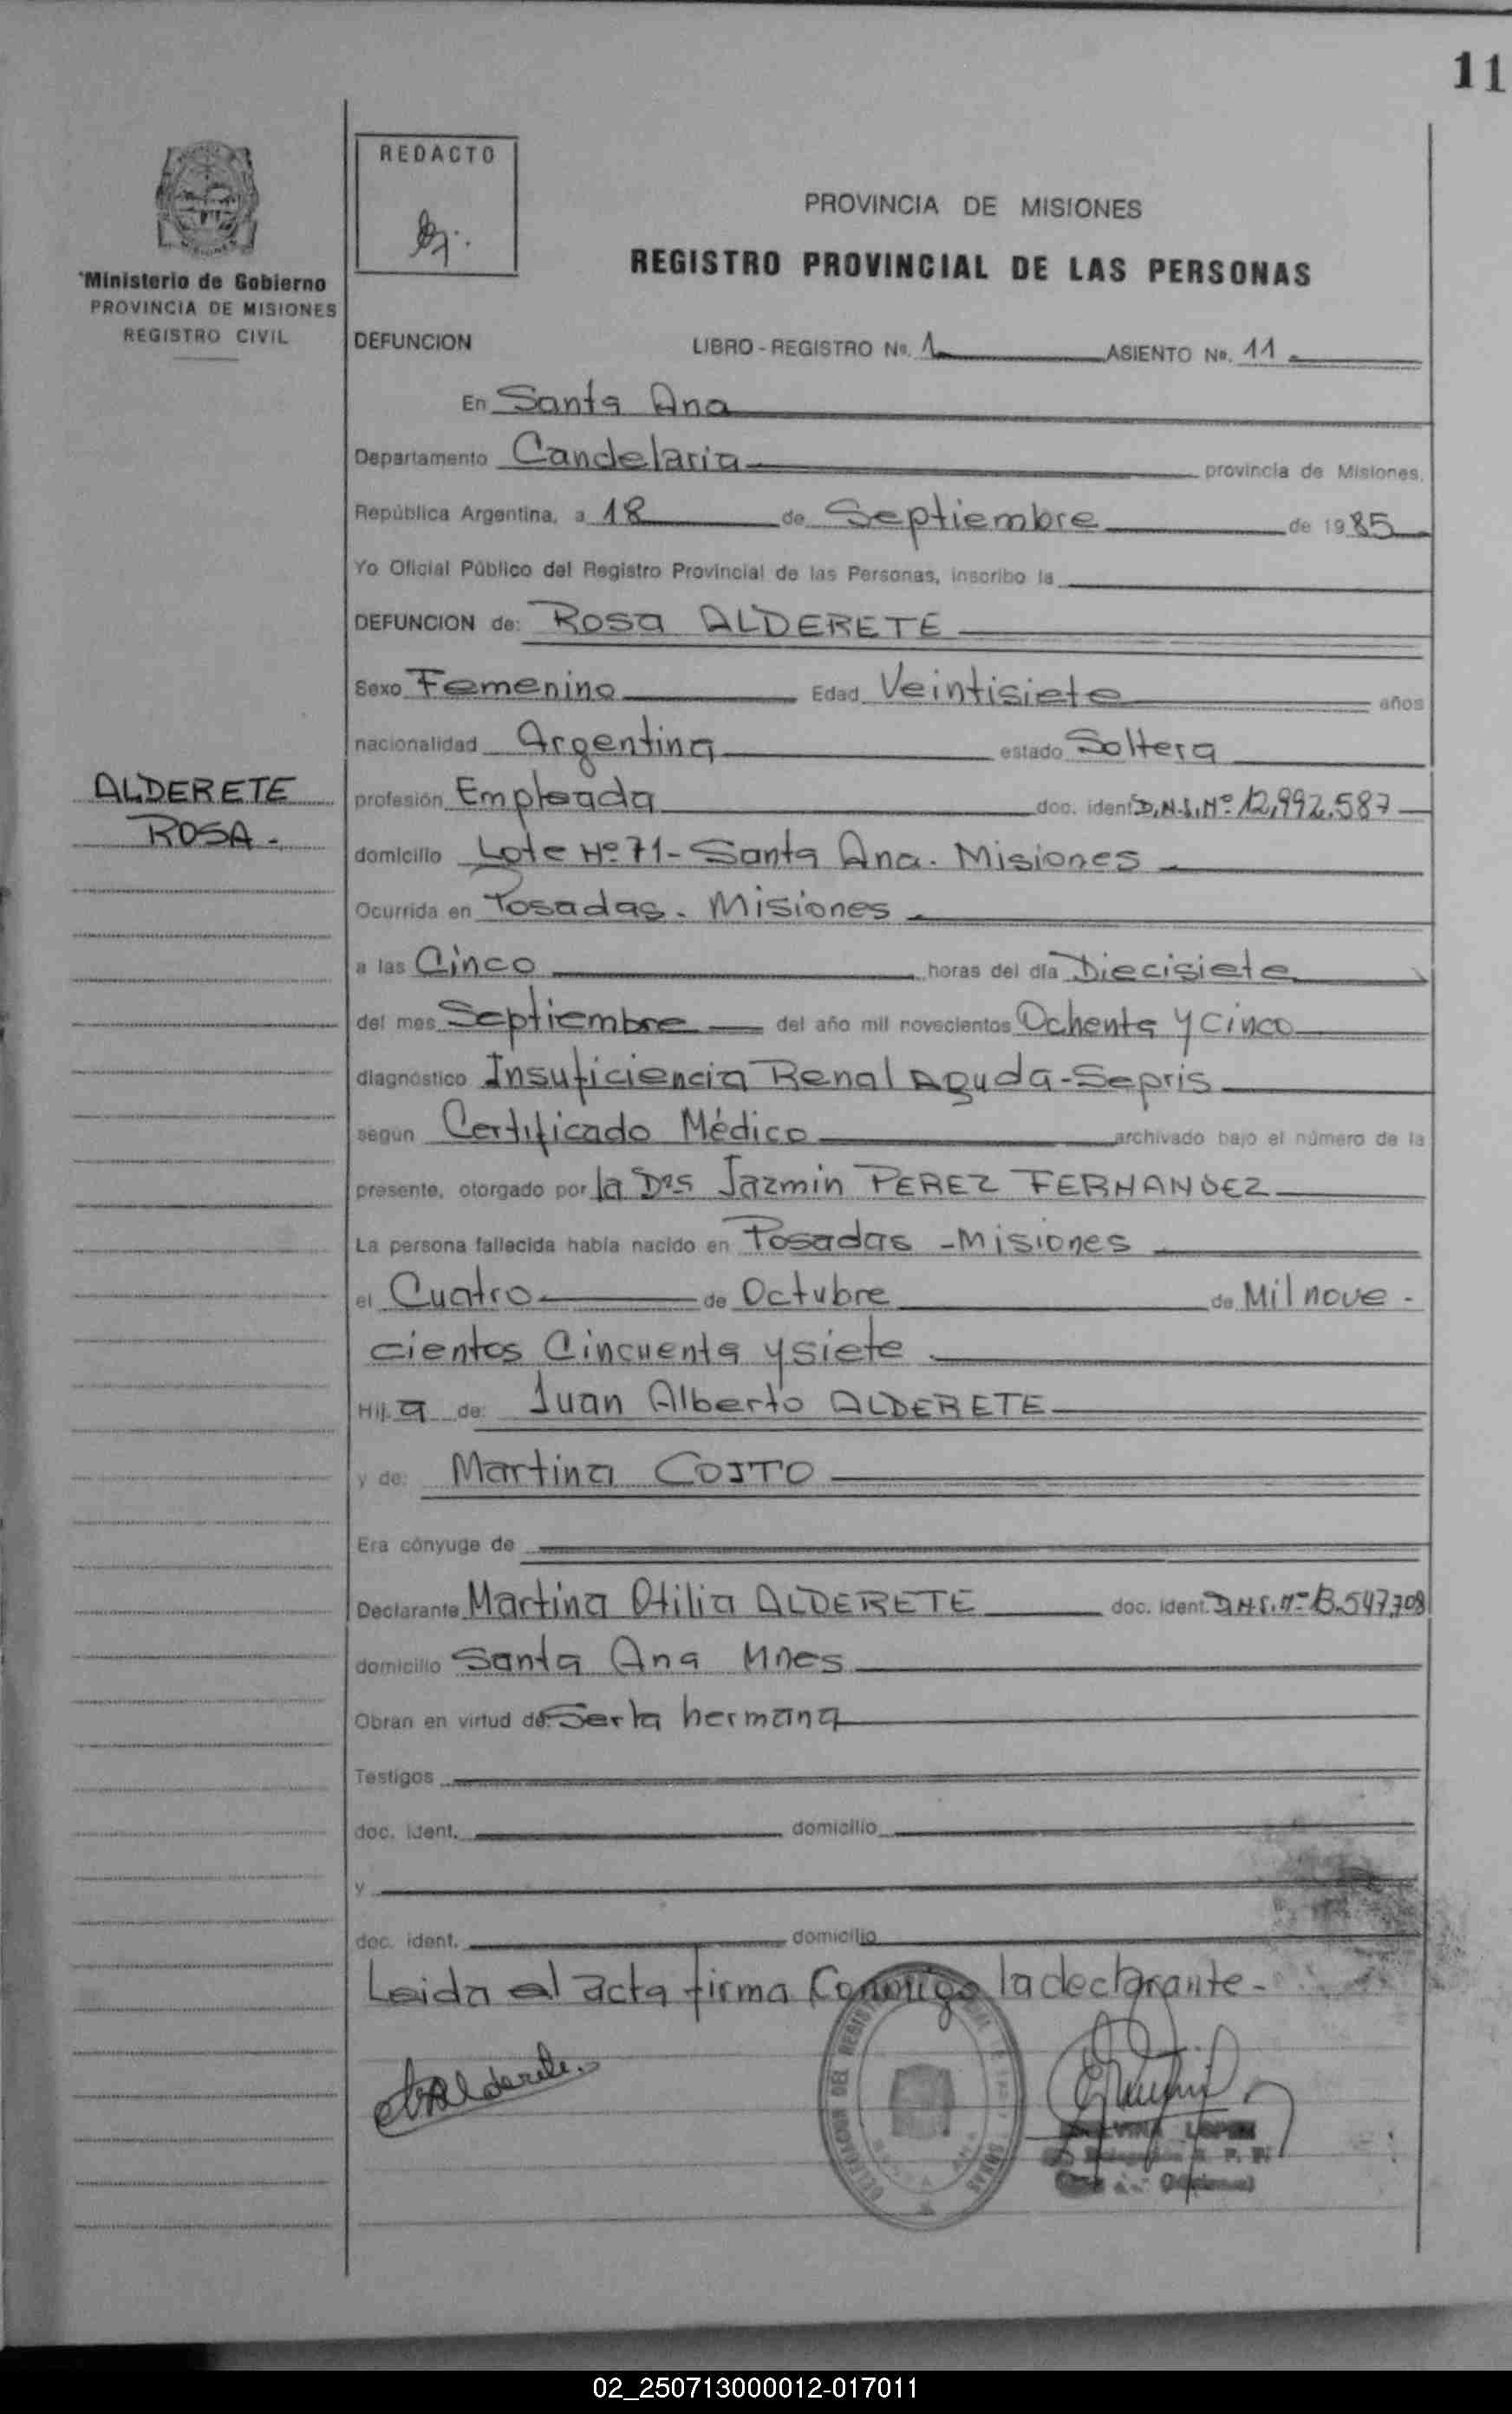 11
REDACTO
PROVINCIA DE MISIONES
REGISTRO PROVINCIAL DE LAS PERSONAS
Ministerio de Gobierno
PROVINCIA DE MISIONES
REGISTRO CIVIL
DEFUNCION LIBRO - REGISTRO Nº. 1 ASIENTO Nº. 11
En Santa Ana
Departamento Candelaria provincia de Misiones,
República Argentina, a 18 de Septiembre de 1985
Yo Oficial Público del Registro Provincial de las Personas, inscribo la
DEFUNCION de: Rosa ALDERETE
Sexo Femenino Edad Veintisiete años
nacionalidad Argentina estado Soltera
ALDERETE
ROSA.-
profesión Empleada doc. ident. D.N.I. Nº 12,992.587
domicilio Lote Nº 71 - Santa Ana. Misiones
Ocurrida en Posadas. Misiones
a las Cinco horas del día Diecisiete
del mes Septiembre del año mil novecientos Ochenta y Cinco
diagnóstico Insuficiencia Renal Aguda - Sepris
según Certificado Médico archivado bajo el número de la
presente, otorgado por la Dra Jazmin PEREZ FERNANDEZ
La persona fallecida había nacido en Posadas - Misiones
el Cuatro de Octubre de Mil nove -
cientos Cincuenta y siete
Hij a de: Juan Alberto ALDERETE
y de: Martina COITO
Era cónyuge de
Declarante Martina Otilia ALDERETE doc. ident. D.N.I. Nº 13.547,708
domicilio Santa Ana Mnes
Obran en virtud de: Ser la hermana
Testigos
doc. ident. domicilio
y
doc. ident. domicilio
Leida el acta firma Conmigo la declarante -
Alderete.
LOPEZ
02_250713000012-017011